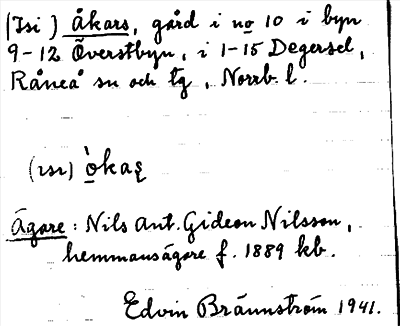 (Isi) Åkars, gård i no 10 i byn
9-12 Överstbyn, i 1-15 Degersel,
Råneå sn och tg, Norrb. l.
(ısı) òkaʂ
Ägare: Nils Ant. Gideon Nilsson,
hemmansägare f. 1889 kb.
Edvin Brännström 1941.